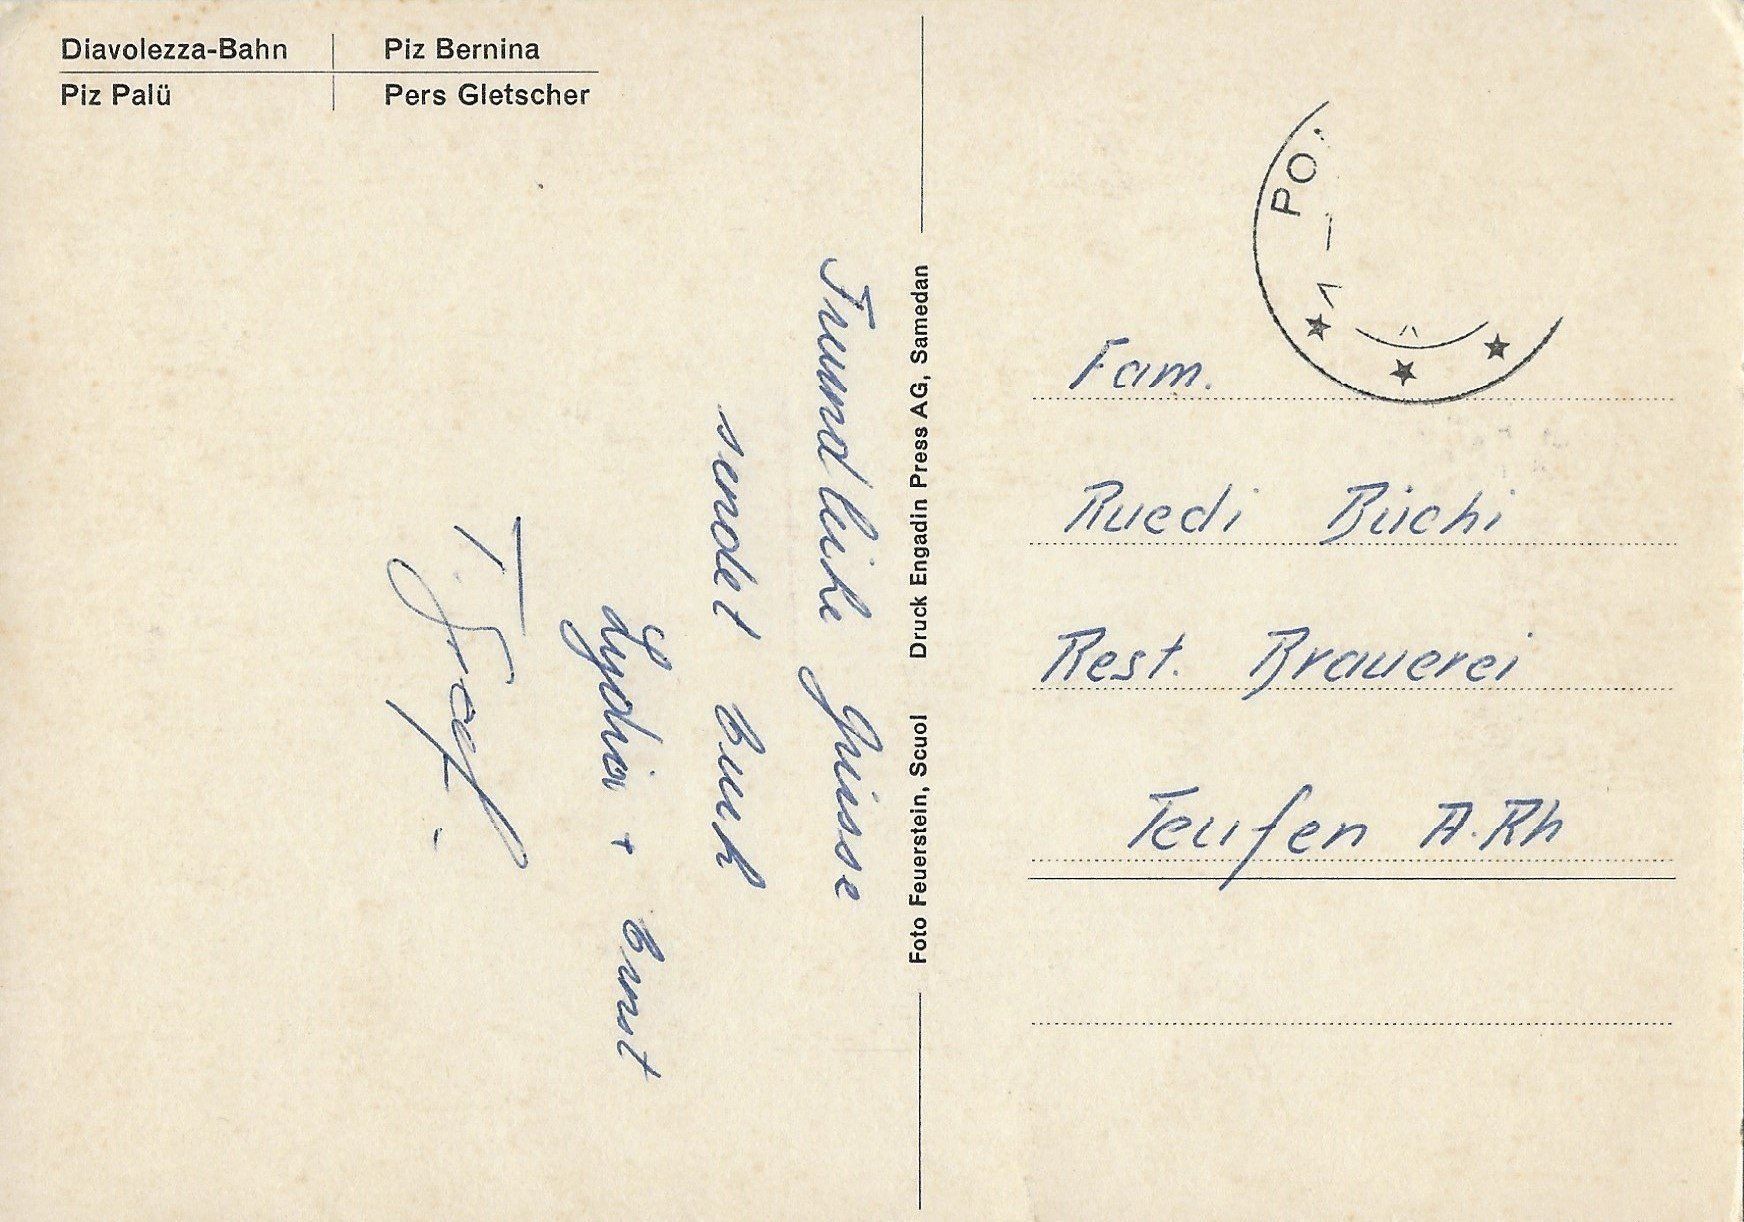 Diavolezza-Bahn | Piz Bernina
Piz Palü | Pers Gletscher
Freundliche Grüsse
sendet Euch
Lydia + Ernst
T. Graf.
Foto Feuerstein, Scuol Druck Engadin Press AG, Samedan
PO
Fam.
Ruedi Büchi
Rest. Brauerei
Teufen A.Rh